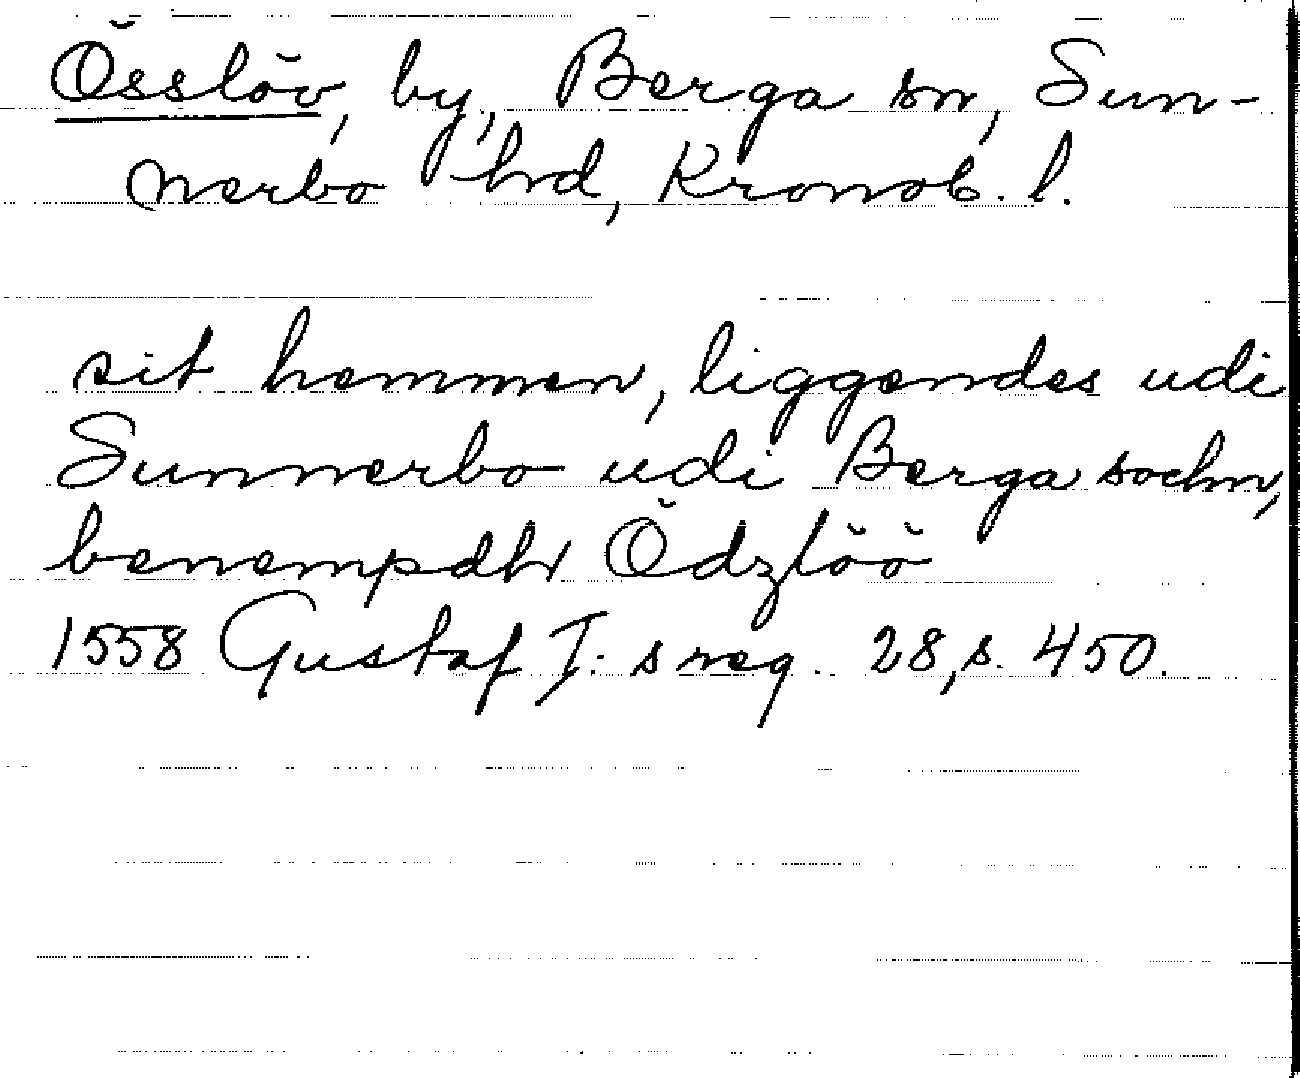 Össlöv, by, Berga sn, Sun-
nerbo hrd, Kronob. l.
sit hemmen, liggendes udi
Sunnerbo udi Berga sochn,
benempdh Ödzlöö
1558 Gustaf I:s reg. 28, s. 450.